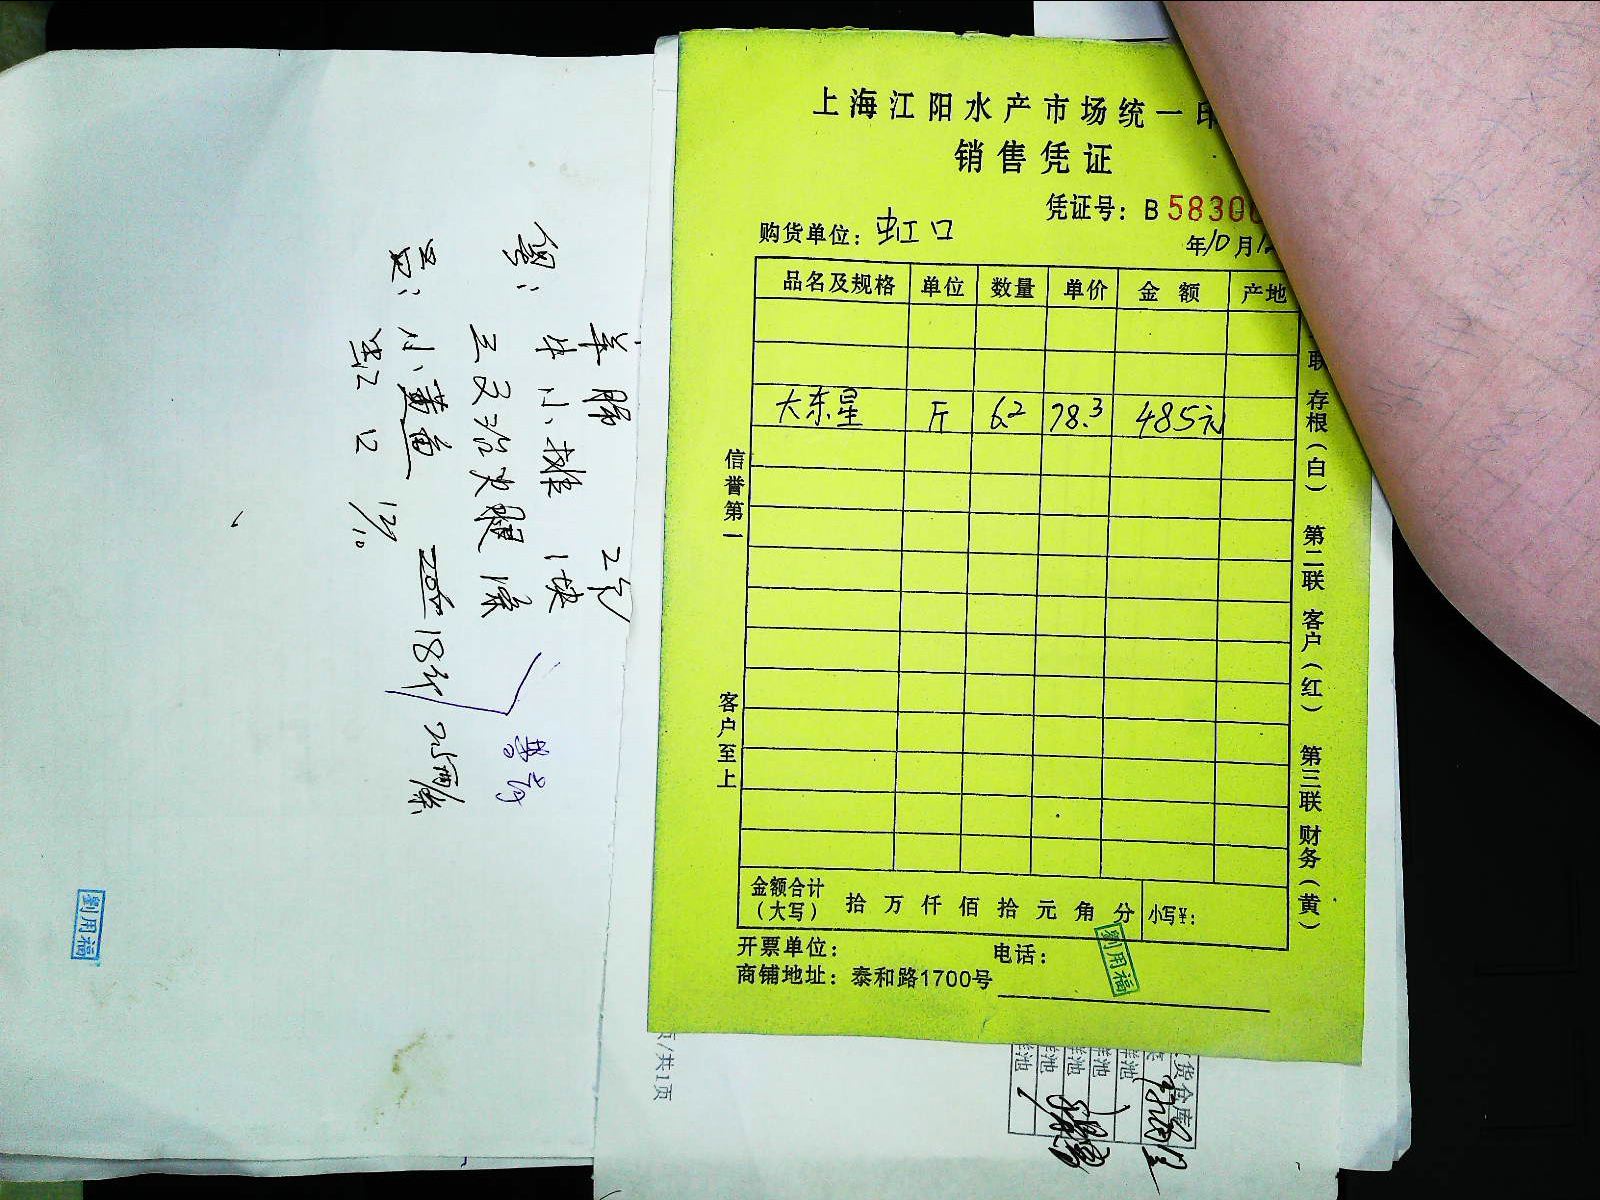 上海江阳水产市场统一印
销售凭证
凭证号：B 5830
购货单位：虹口
年10月12
品名及规格 单位 数量 单价 金额 产地
大东星 斤 6.2 78.3 485元
信誉第一
客户至上
联 存根（白） 第二联 客户（红） 第三联 财务（黄）
金额合计（大写） 拾 万 仟 佰 拾 元 角 分 小写¥：
开票单位： 电话：
商铺地址：泰和路1700号
劉用福
页/共1页
货仓库
鲜池
鲜池
鲜池
鲜池
羊腿 2只
牛小排 1块
小黄鱼 18斤 2.5两/条
虹口 12/10
劉用福